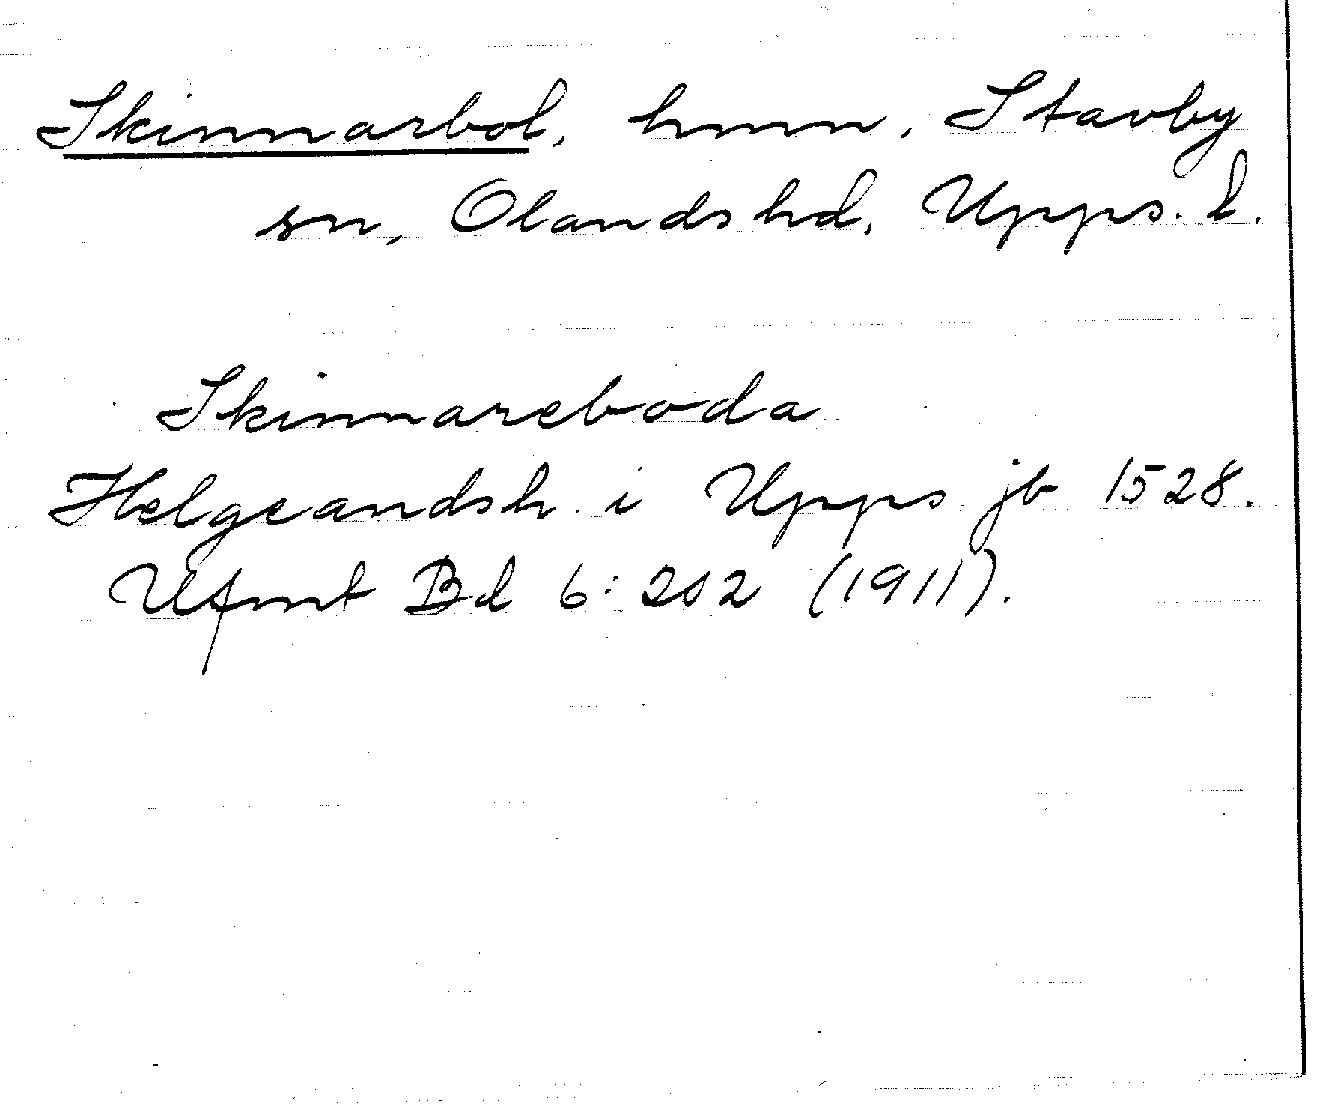 Skinnarbol, hmn, Stavby
sn, Olands hd, Upps. l.
Skinnareboda
Helgeandsh. i Upps jb 1528.
Ufmt Bd 6: 202 (1911).